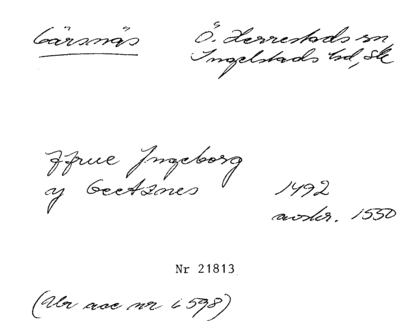 Gärsnäs Ö. Herrestads sn
Ingelstads hd, Sk
ffrue Ingeborg
y Geetsnes 1492
avskr. 1550
Nr 21813
(Abr acc nr 6598)